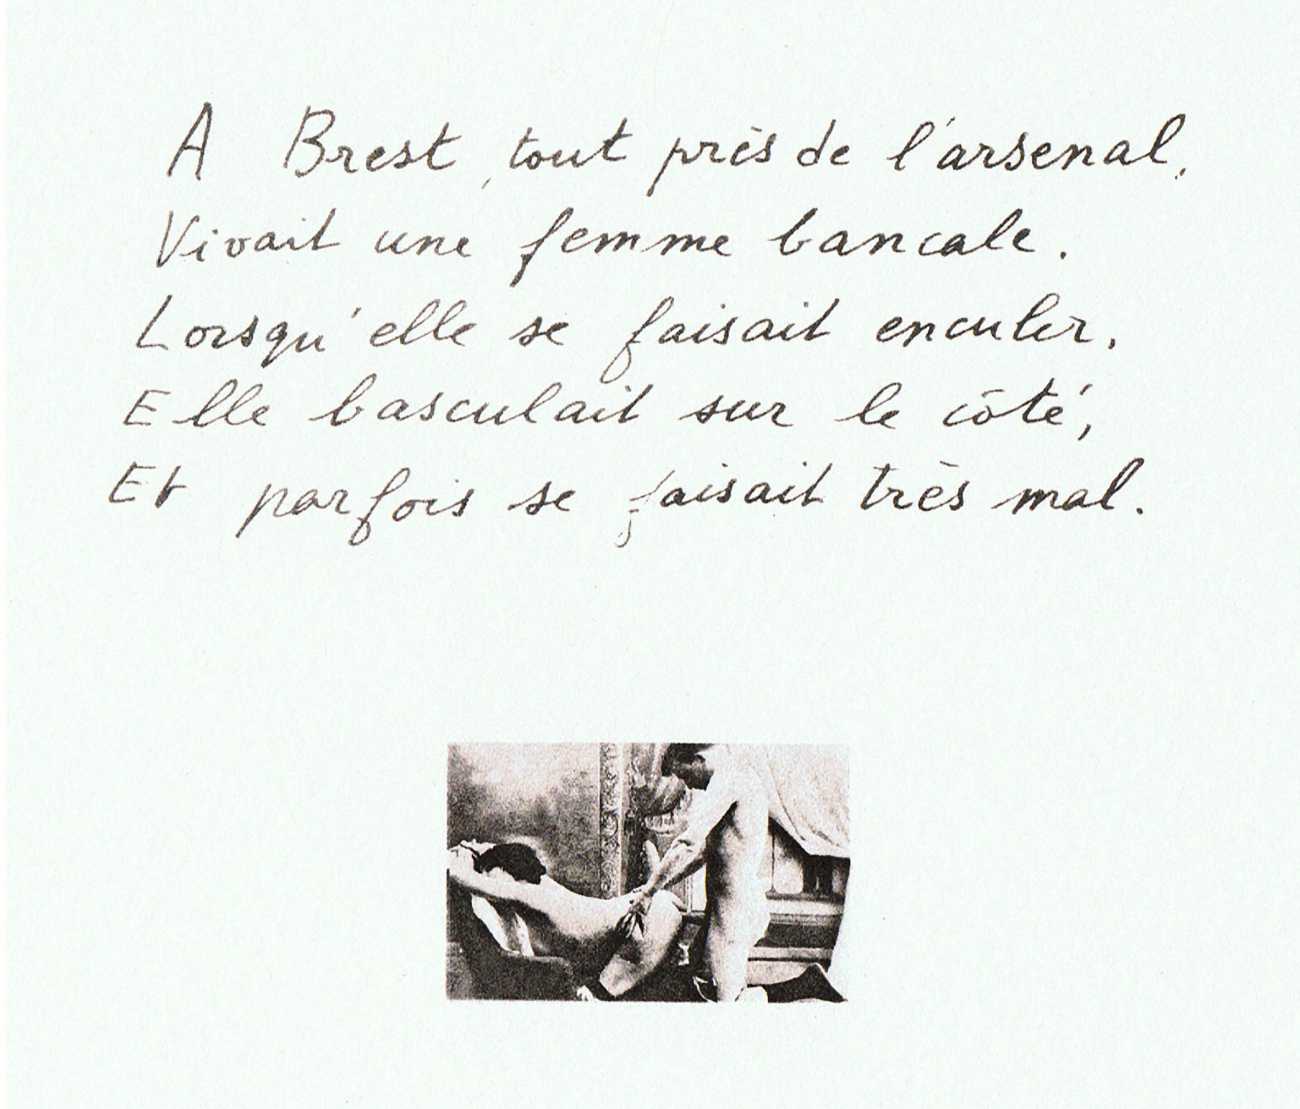 A Brest, tout près de l'arsenal,
Vivait une femme bancale.
Lorsqu'elle se faisait enculer,
Elle basculait sur le côté,
Et parfois se faisait très mal.